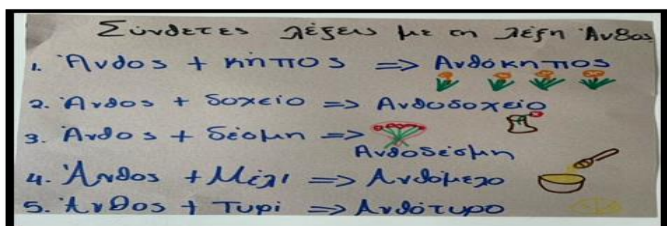 Σύνθετες λέξεις με τη λέξη Άνθος
1. Άνθος + κήπος => Ανθόκηπος
2. Άνθος + δοχείο => Ανθοδοχείο
3. Άνθος + δέσμη =>
Ανθοδέσμη
4. Άνθος + Μέλι => Ανθόμελο
5. Άνθος + Τυρί => Ανθότυρο